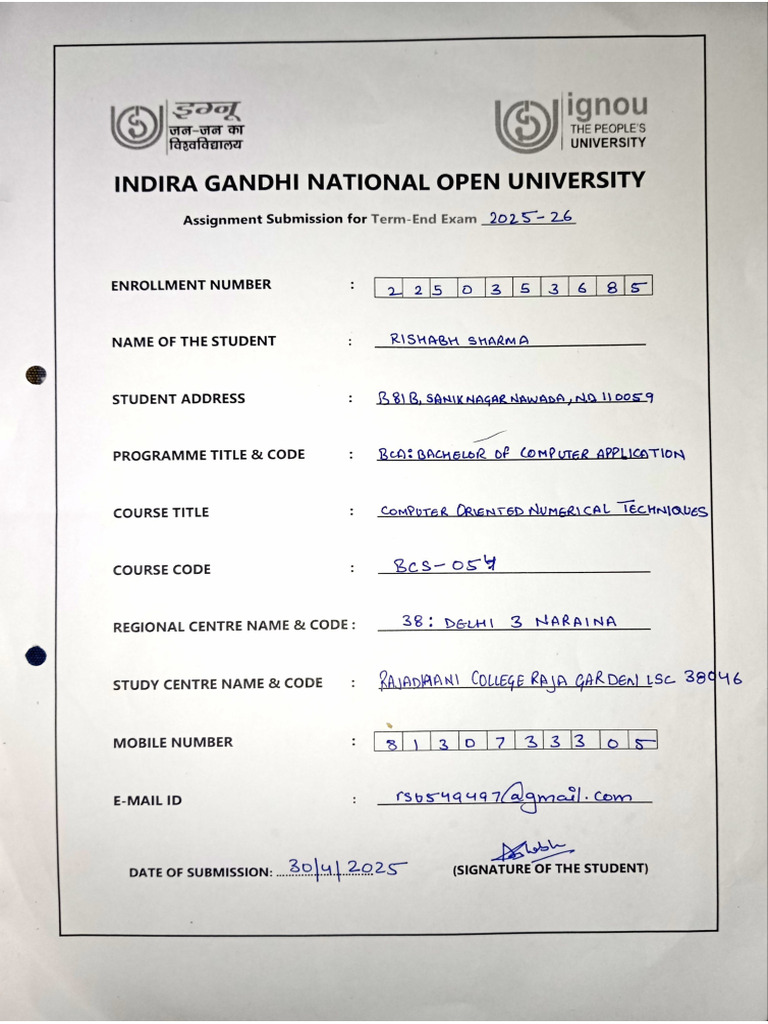 इग्नू
जन-जन का
विश्वविद्यालय
ignou
THE PEOPLE'S
UNIVERSITY
INDIRA GANDHI NATIONAL OPEN UNIVERSITY
Assignment Submission for Term-End Exam 2025-26
ENROLLMENT NUMBER : 2250353685
NAME OF THE STUDENT : RISHABH SHARMA
STUDENT ADDRESS : B81B, SANIKNAGAR NAWADA, ND 110059
PROGRAMME TITLE & CODE : BCA: BACHELOR OF COMPUTER APPLICATION
COURSE TITLE : COMPUTER ORIENTED NUMERICAL TECHNIQUES
COURSE CODE : BCS-054
REGIONAL CENTRE NAME & CODE : 38: DELHI 3 NARAINA
STUDY CENTRE NAME & CODE : RAJADHANI COLLEGE RAJA GARDEN LSC 38046
MOBILE NUMBER : 8130733305
E-MAIL ID : rs6549497@gmail.com
DATE OF SUBMISSION: 30/4/2025
(SIGNATURE OF THE STUDENT)